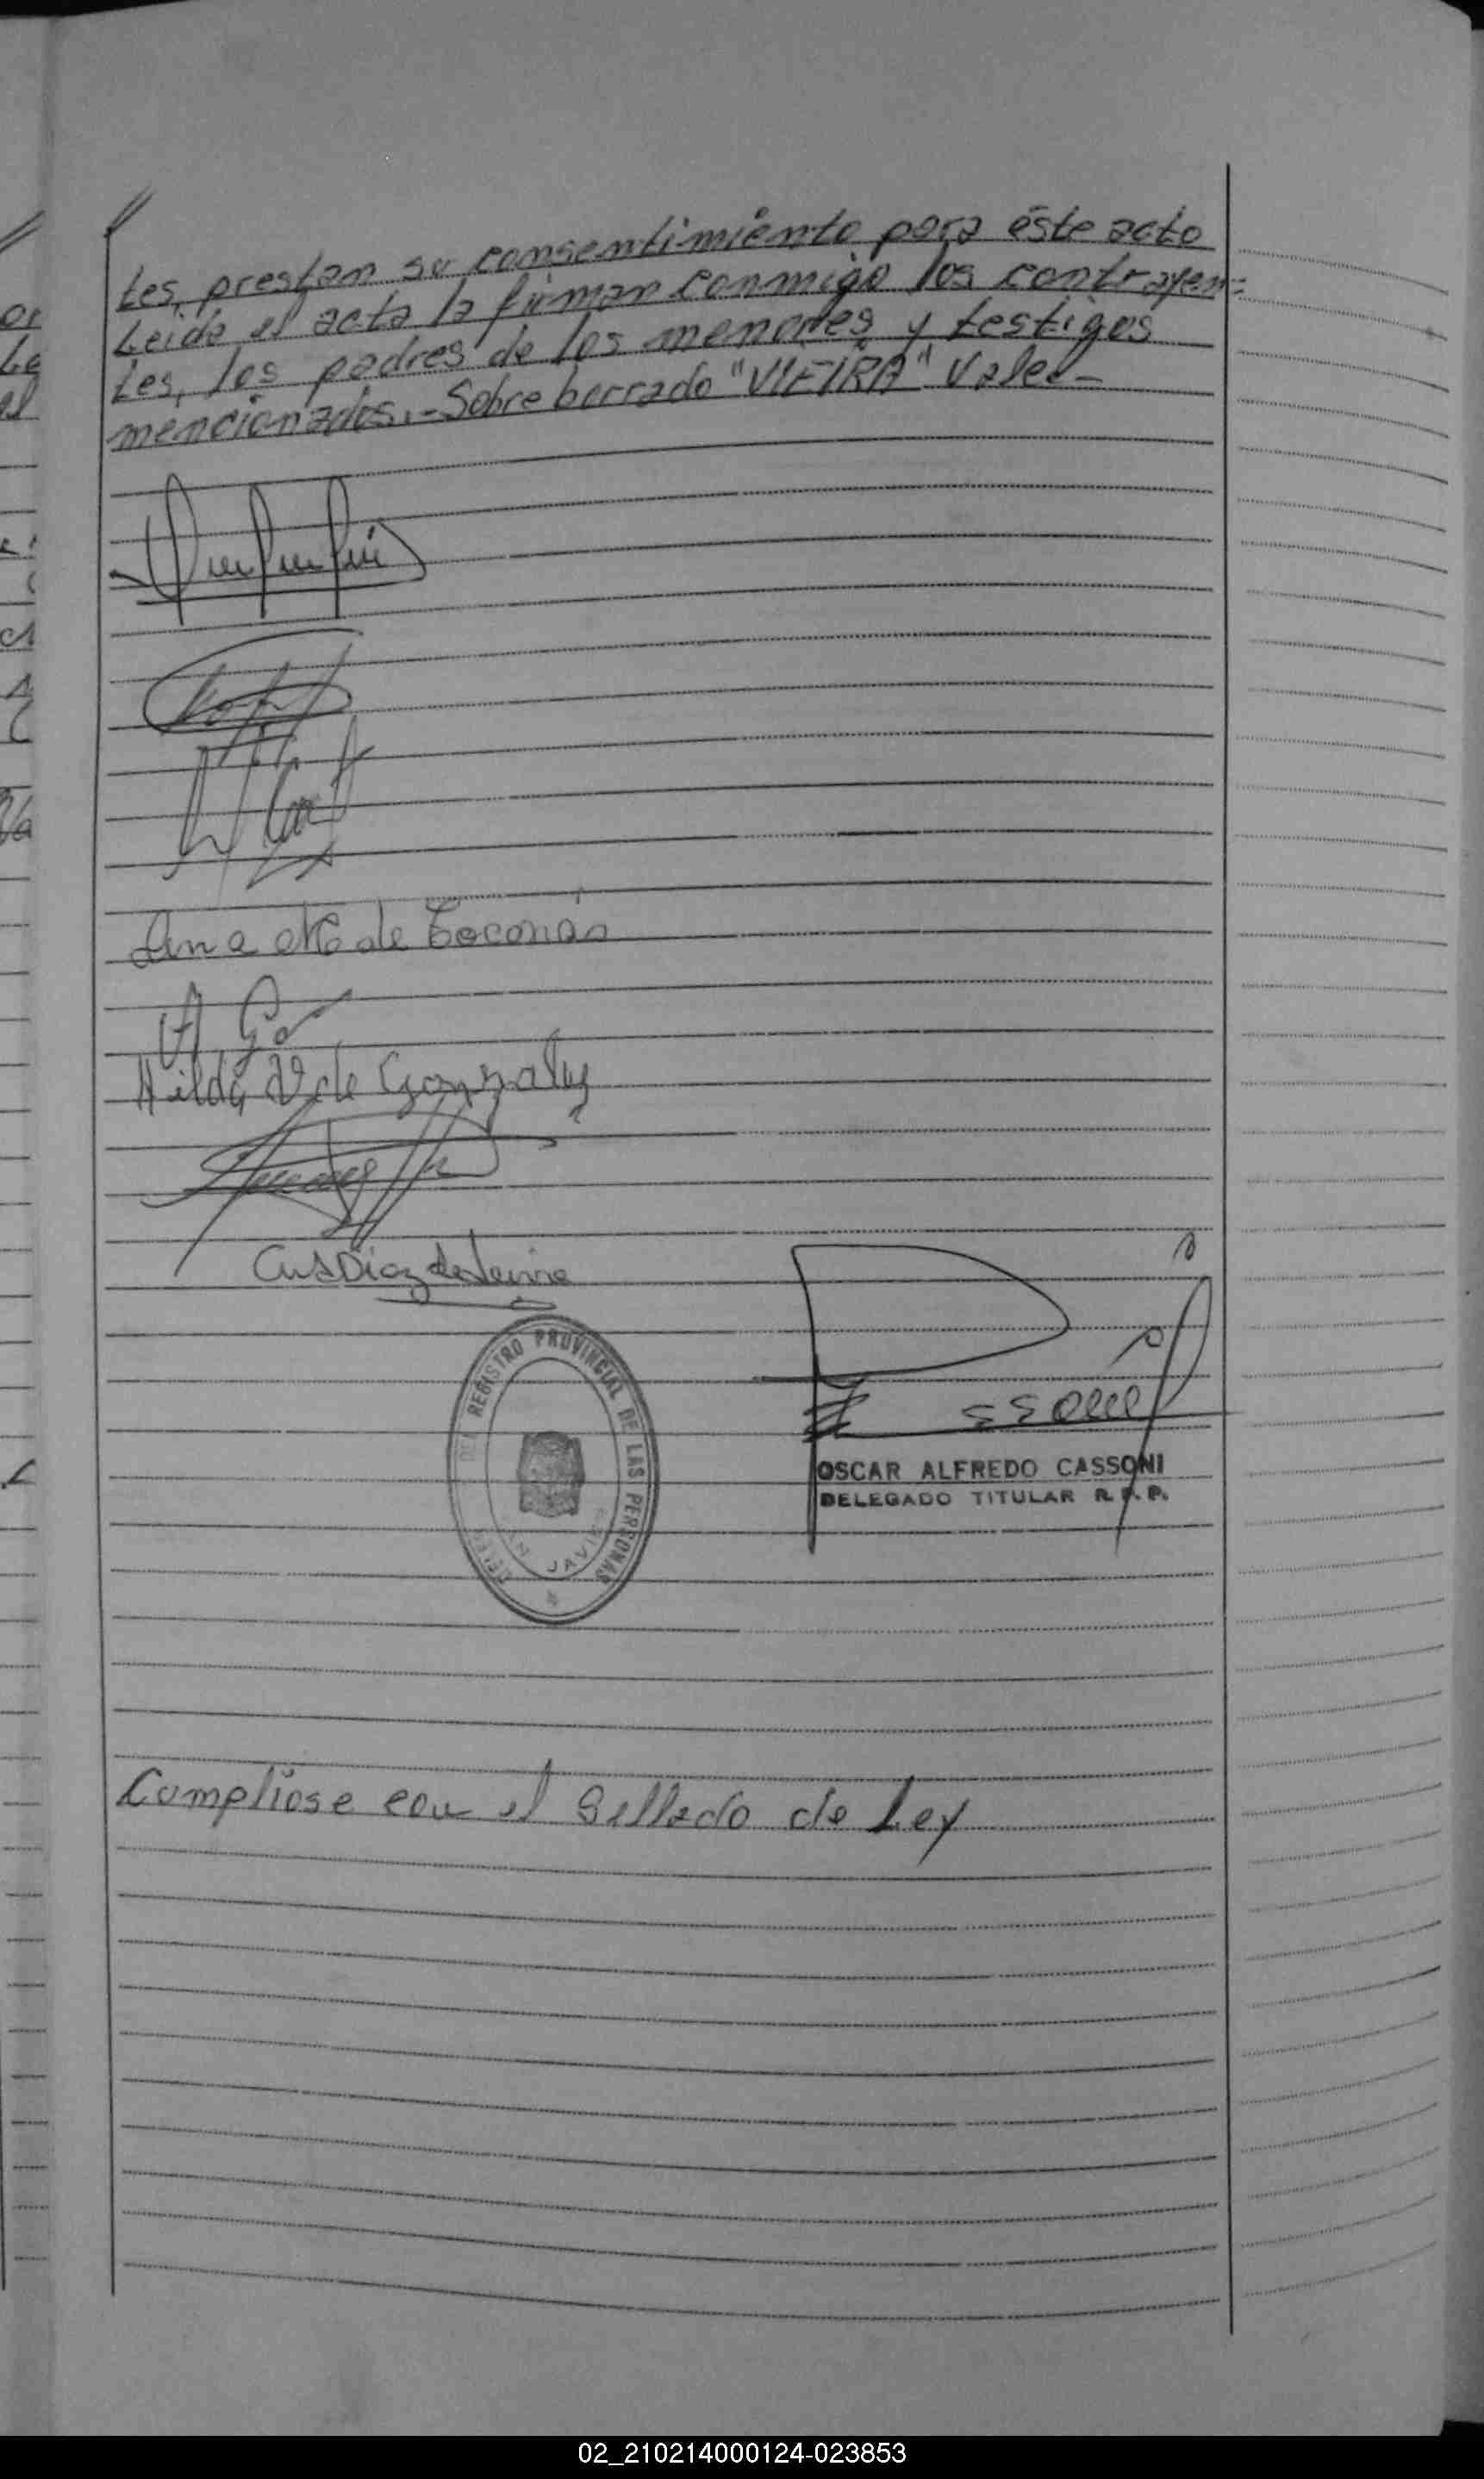 //
tes, prestan su consentimiento para éste acto
Leida el acta la firman conmigo los contrayen=
tes, los padres de los menores y testigos
mencionados.- Sobre borrado "VIEIRA" Vale.-
de Toconás
Hilda V de Gonzalez
Diaz de
DEL REGISTRO PROVINCIAL DE LAS PERSONAS
SAN JAVIER
OSCAR ALFREDO CASSONI
DELEGADO TITULAR R. P. P.
Complióse con el Sellado de Ley
02_210214000124-023853